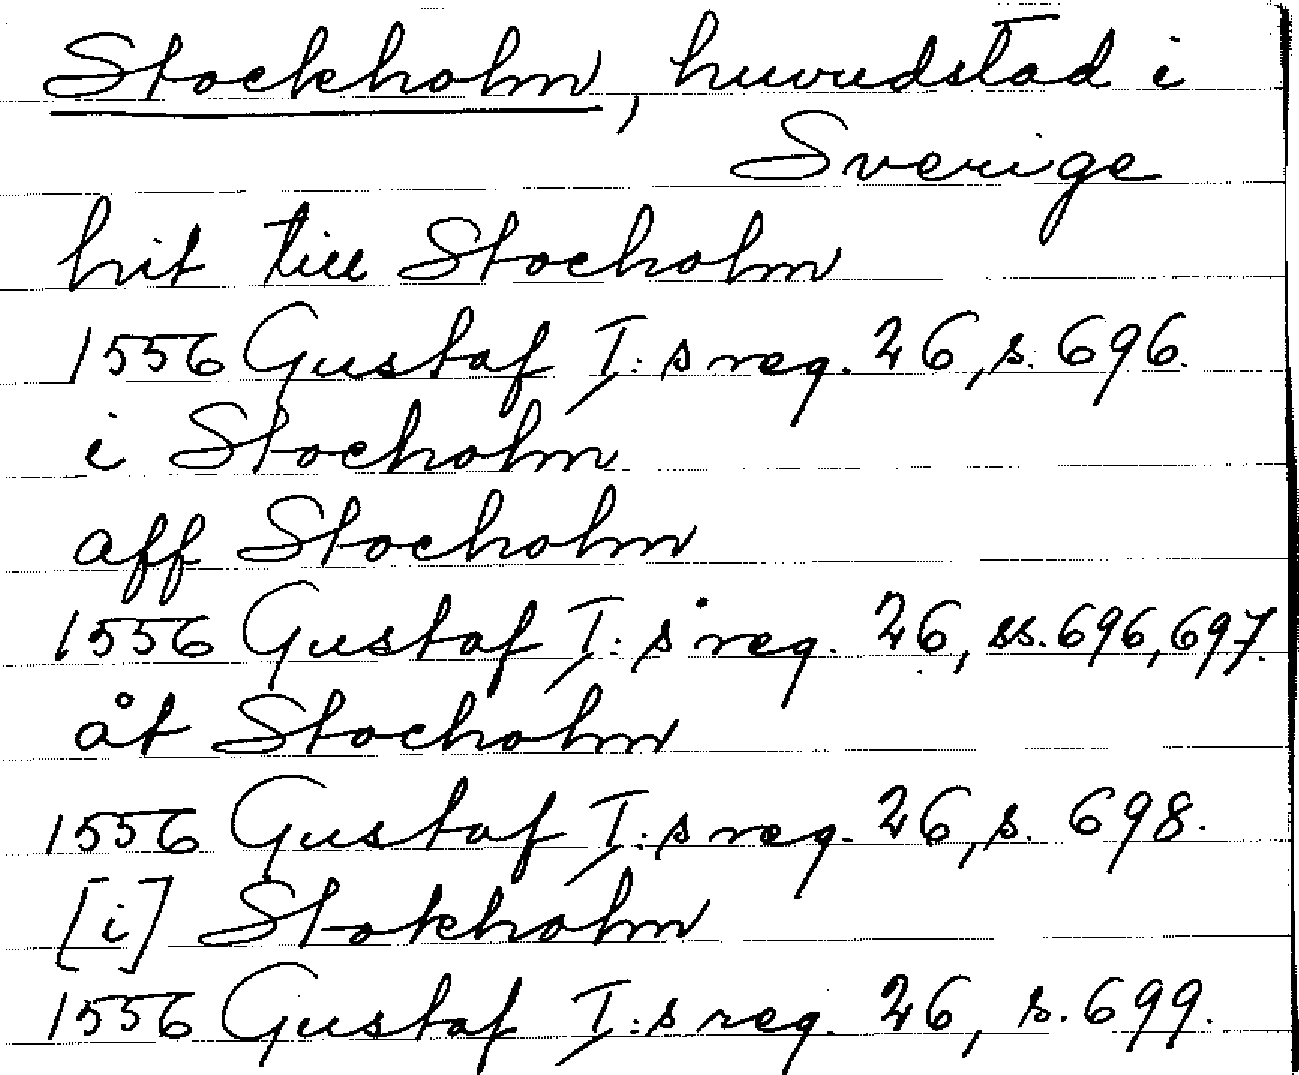 Stockholm, huvudstad i
Sverige
hit till Stocholm
1556 Gustaf I:s reg. 26, s. 696.
i Stocholm
aff Stocholm
1556 Gustaf I:s reg. 26, ss. 696, 697.
åt Stocholm
1556 Gustaf I:s reg. 26, s. 698.
[i] Stokholm
1556 Gustaf I:s reg. 26, s. 699.